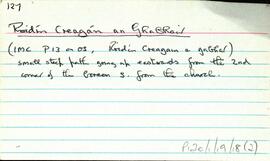 127
Róidín Creagán an Ghabhair
(IMC P 13 on OS, Roidín Creagan a gabher)
small steep path going up eastwards from the 2nd
corner of the Boreen S. from the church.
P120/1/9/18 (2)